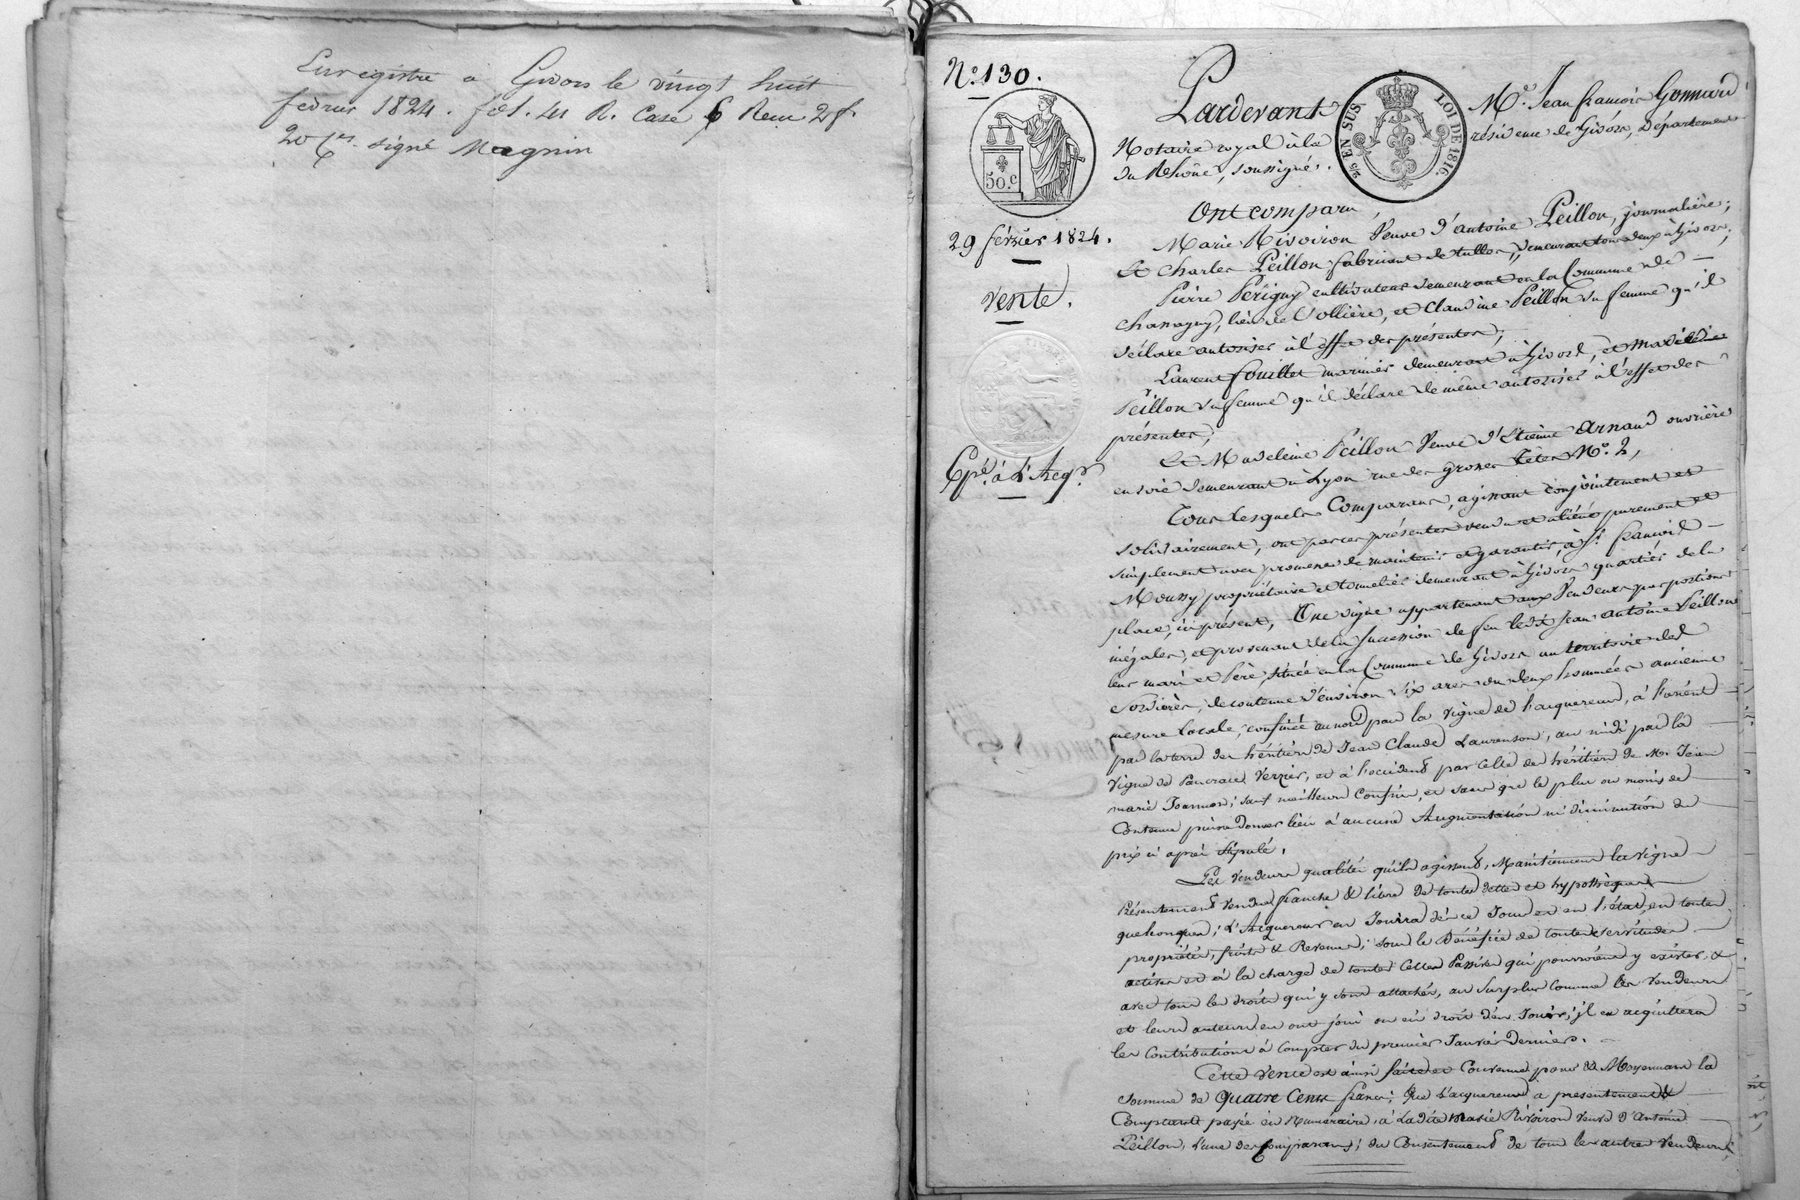 Enregistré a Givors le vingt huit
fevrier 1824. fol. 41 R. Case 6 Recu 2 f.
20 c. signé Magnin
N.º 130.
50.c
29 février 1824.
Vente.
Exp.é à l'Acq.r
25 EN SUS. LOI DE 1816.
Pardevant M.e Jean françois Gonnard
Notaire royal à la résidence de Givors, Département
du Rhône, soussigné.
Ont comparu,
Marie Rivoiron Veuve d'antoine Peillon, journalière;
Et Charles Peillon fabricant de tulles, demeurant tous deux à Givors;
Pierre Périgny cultivateur demeurant en la Commune de
Chanagny, lieu de Sollière, et Claudine Peillon sa femme qu'il
déclare autoriser à l'effet des présentes;
Laurent fouillet marinier demeurant à Givors, et Madeleine
Peillon sa femme qu'il déclare de même autoriser à l'effet des
présentes;
Et Madeleine Peillon Veuve d'Etienne Arnaud ouvrière
en soie demeurant à Lyon rue des grosses Têtes N.º 2,
Tous lesquels Comparans, agissant conjointement et
solidairement, ont par ces présentes vendu et aliéné purement et
simplement avec promesse de maintenir et garantir, à S.r françois
Moussy propriétaire et tonnelier demeurant à Givors quartier de la
place, ici présent, Une vigne appartenant aux Vendeurs par portions
inégales, et provenant de la succession de feu ledit Jean antoine Peillon
leur mari et père, située en la Commune de Givors au territoire des
, de contenue d'environ six ares ou deux hommées ancienne
mesure locale, confinée au nord par la vigne de l'acquereur, à l'orient
par la terre des héritiers de Jean Claude Laurenson, au midi par la
vigne de Pancrace Verzier, et à l'occident par celle des héritiers de M. Jean
marie ; sauf meilleurs confins, et sans que le plus ou moins de
Contenue puisse donner lieu à aucune Augmentation ni diminution du
prix ci après stipulé.
Les Vendeurs qualités qu'ils agissent, Maintiennent la vigne
Présentement Vendue franche & libre de toutes dettes et hypothèques
quelconques; L'Acquereur en Jouira dès ce Jour et en l'état, en toutes
propriétés, fruits & Revenus; sous le Bénéfice de toutes servitudes
actives et à la charge de toutes celles Passives qui pourroient y exister, &
avec tous les droits qui y sont attachés, au surplus comme les vendeurs
et leurs auteurs en ont joui ou eu droit d'en Jouir; il en acquittera
les contributions à compter du premier Janvier dernier.
Cette Vente est ainsi faite et Convenue pour & Moyennant la
somme de Quatre Cents francs; Que l'acquereur a presentement &
Comptant payée en Numéraire, à Ladite Marie Rivoiron veuve d'Antoine
Peillon, l'une des Comparans; du Consentement de tous les autres Vendeurs,